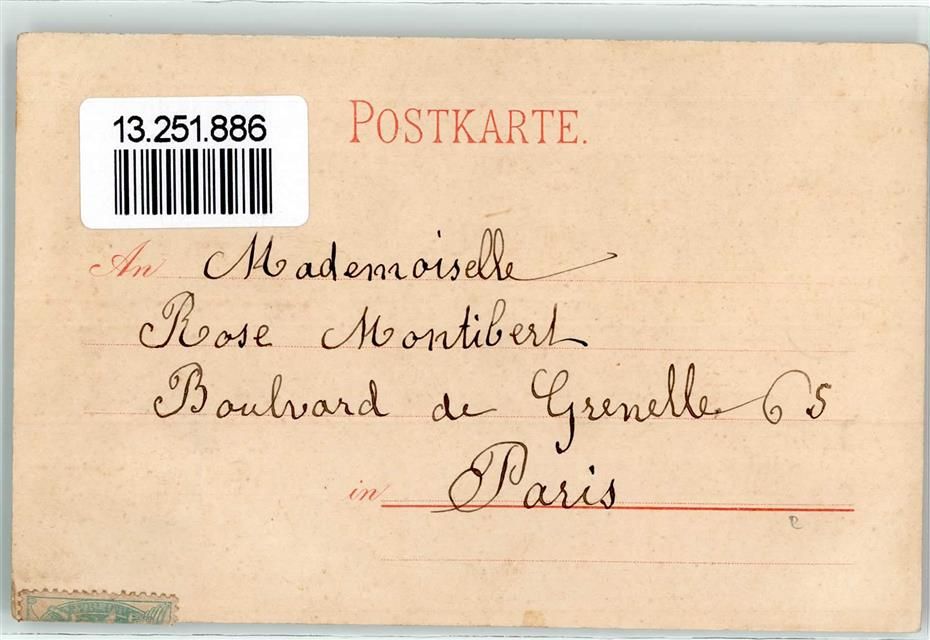 13.251.886
POSTKARTE.
An Mademoiselle
Rose Montibert
Boulvard de Grenelle 65
in Paris